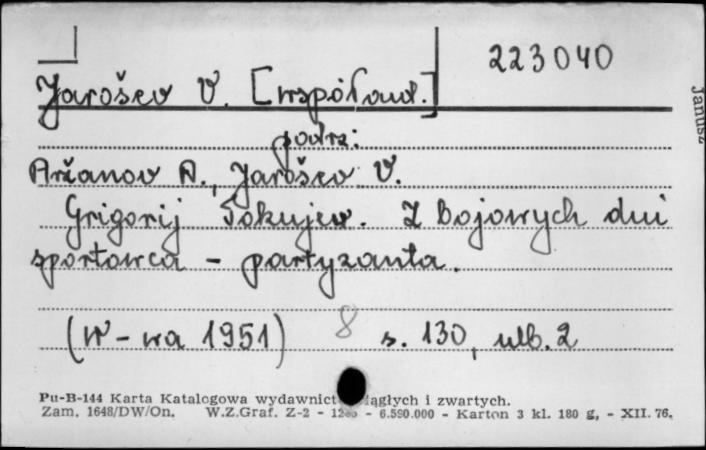 223040
Jarošev V. [współaut.]
podrz:
Aržanov A., Jarošev V.
Grigorij Tokujev. Z bojowych dni
sportowca - partyzanta.
(W-wa 1951) 8 s. 130, nlb. 2
Pu-B-144 Karta Katalogowa wydawnict iągłych i zwartych.
Zam. 1648/DW/On. W.Z.Graf. Z-2 - - 6.590.000 - Karton 3 kl. 180 g, - XII. 76.
Janusz